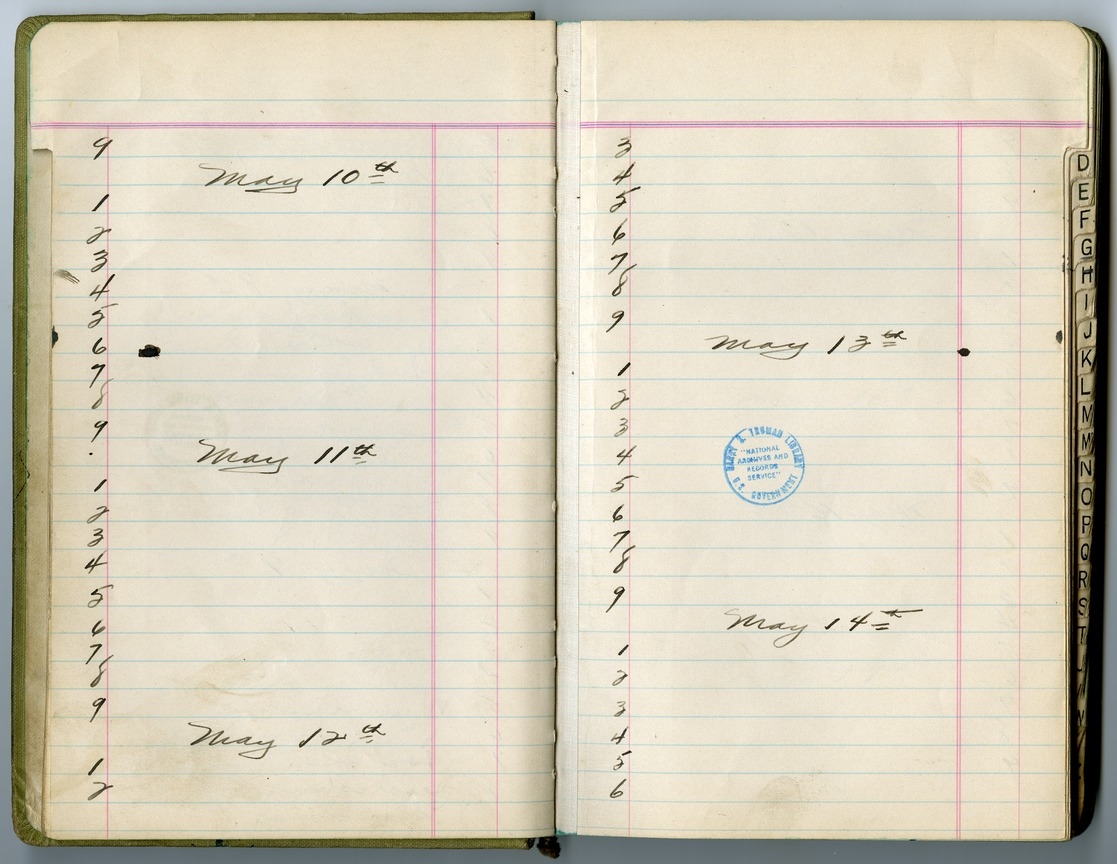 9
May 10th
1
2
3
4
5
6
7
8
9
May 11th
1
2
3
4
5
6
7
8
9
May 12th
1
2
3
4
5
6
7
8
9
May 13th
1
2
3
4
5
6
7
8
9
May 14th
1
2
3
4
5
6
HARRY S. TRUMAN LIBRARY
"NATIONAL
ARCHIVES AND
RECORDS
SERVICE"
U.S. GOVERNMENT
D
E
F
G
H
I
J
K
L
M
M
N
O
P
Q
R
S
T